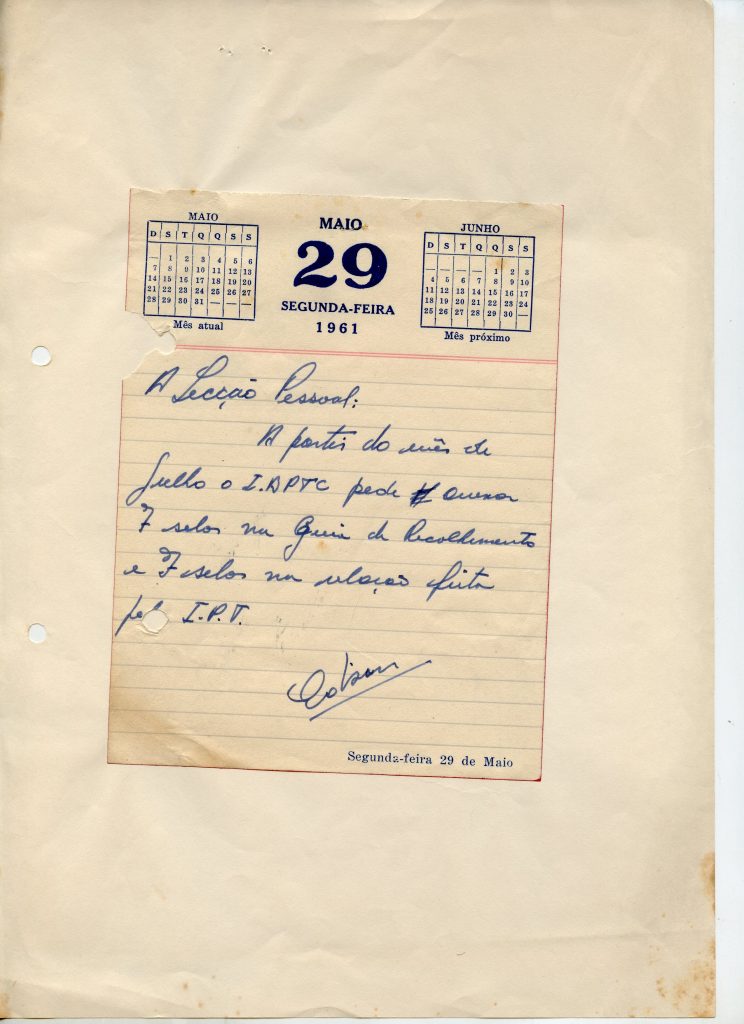 MAIO
D S T Q Q S S
— 1 2 3 4 5 6
7 8 9 10 11 12 13
14 15 16 17 18 19 20
21 22 23 24 25 26 27
28 29 30 31 — — —
Mês atual
MAIO
29
SEGUNDA-FEIRA
1961
JUNHO
D S T Q Q S S
— — — — 1 2 3
4 5 6 7 8 9 10
11 12 13 14 15 16 17
18 19 20 21 22 23 24
25 26 27 28 29 30 —
Mês próximo
A Secção Pessoal:
A partir do mês de
Julho o I.APTC pede anexar
7 selos na Guia de Recolhimento
e 7 selos na relação feita
pelo I.P.T.
Segunda-feira 29 de Maio